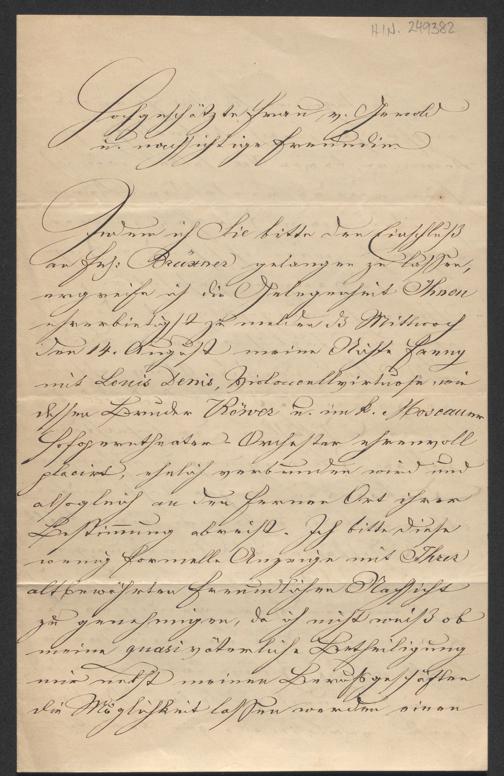 H.I.N. 249382
Hochgeschätzte Frau v. Gerold
u. nachsichtige Freundin
Indem ich Sie bitte den Einschluß
an Frl: Brüxner gelangen zu lassen,
ergreife ich die Gelegenheit Ihnen
ehrerbietigst zu melden dß Mittwoch
den 14. August meine Nichte Fanny
mit Louis Denis, Violoncellvirtuose wie
dessen Bruder u. im k. Moscauer
Hofoperntheater-Orchester ehrenvoll
placirt, ehelich verbunden wird und
alsogleich an den fernen Ort ihrer
Bestimmung abreist. Ich bitte diese
wenig formelle Anzeige mit Ihrer
altbewährten freundlichen Nachsicht
zu genehmigen, da ich nicht weiß ob
meine quasi väterliche Betheiligung
mir nebst meinen Berufsgeschäften
die Möglichkeit lassen werden einen